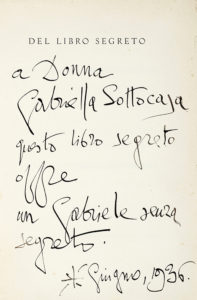 DEL LIBRO SEGRETO
a Donna
Gabriella Sottocasa
questo libro segreto
offre
un Gabriele senza
segreto.
Giugno, 1936.